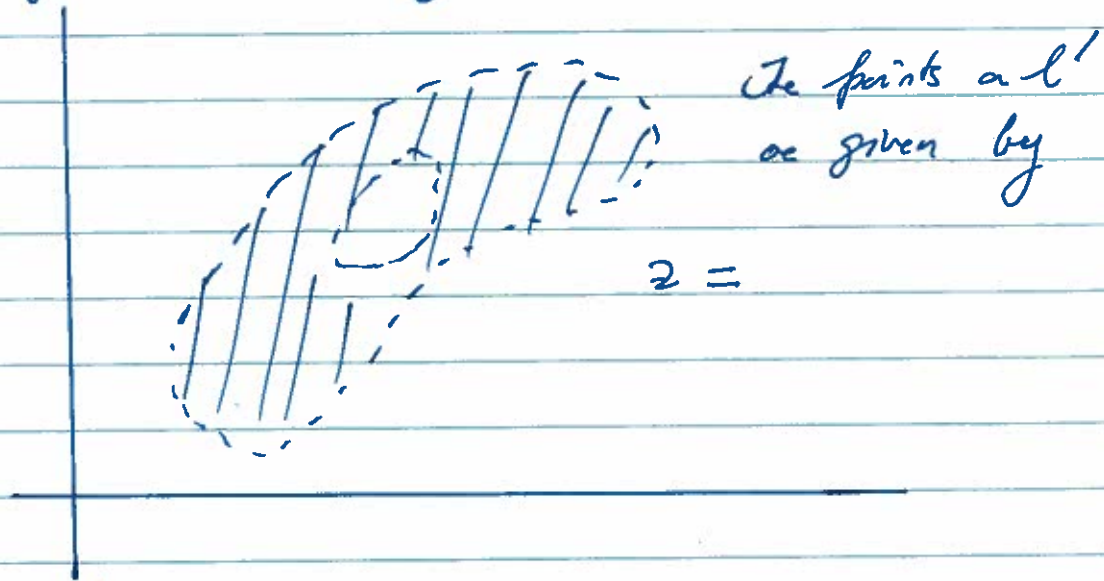 The points on l'
are given by
z =